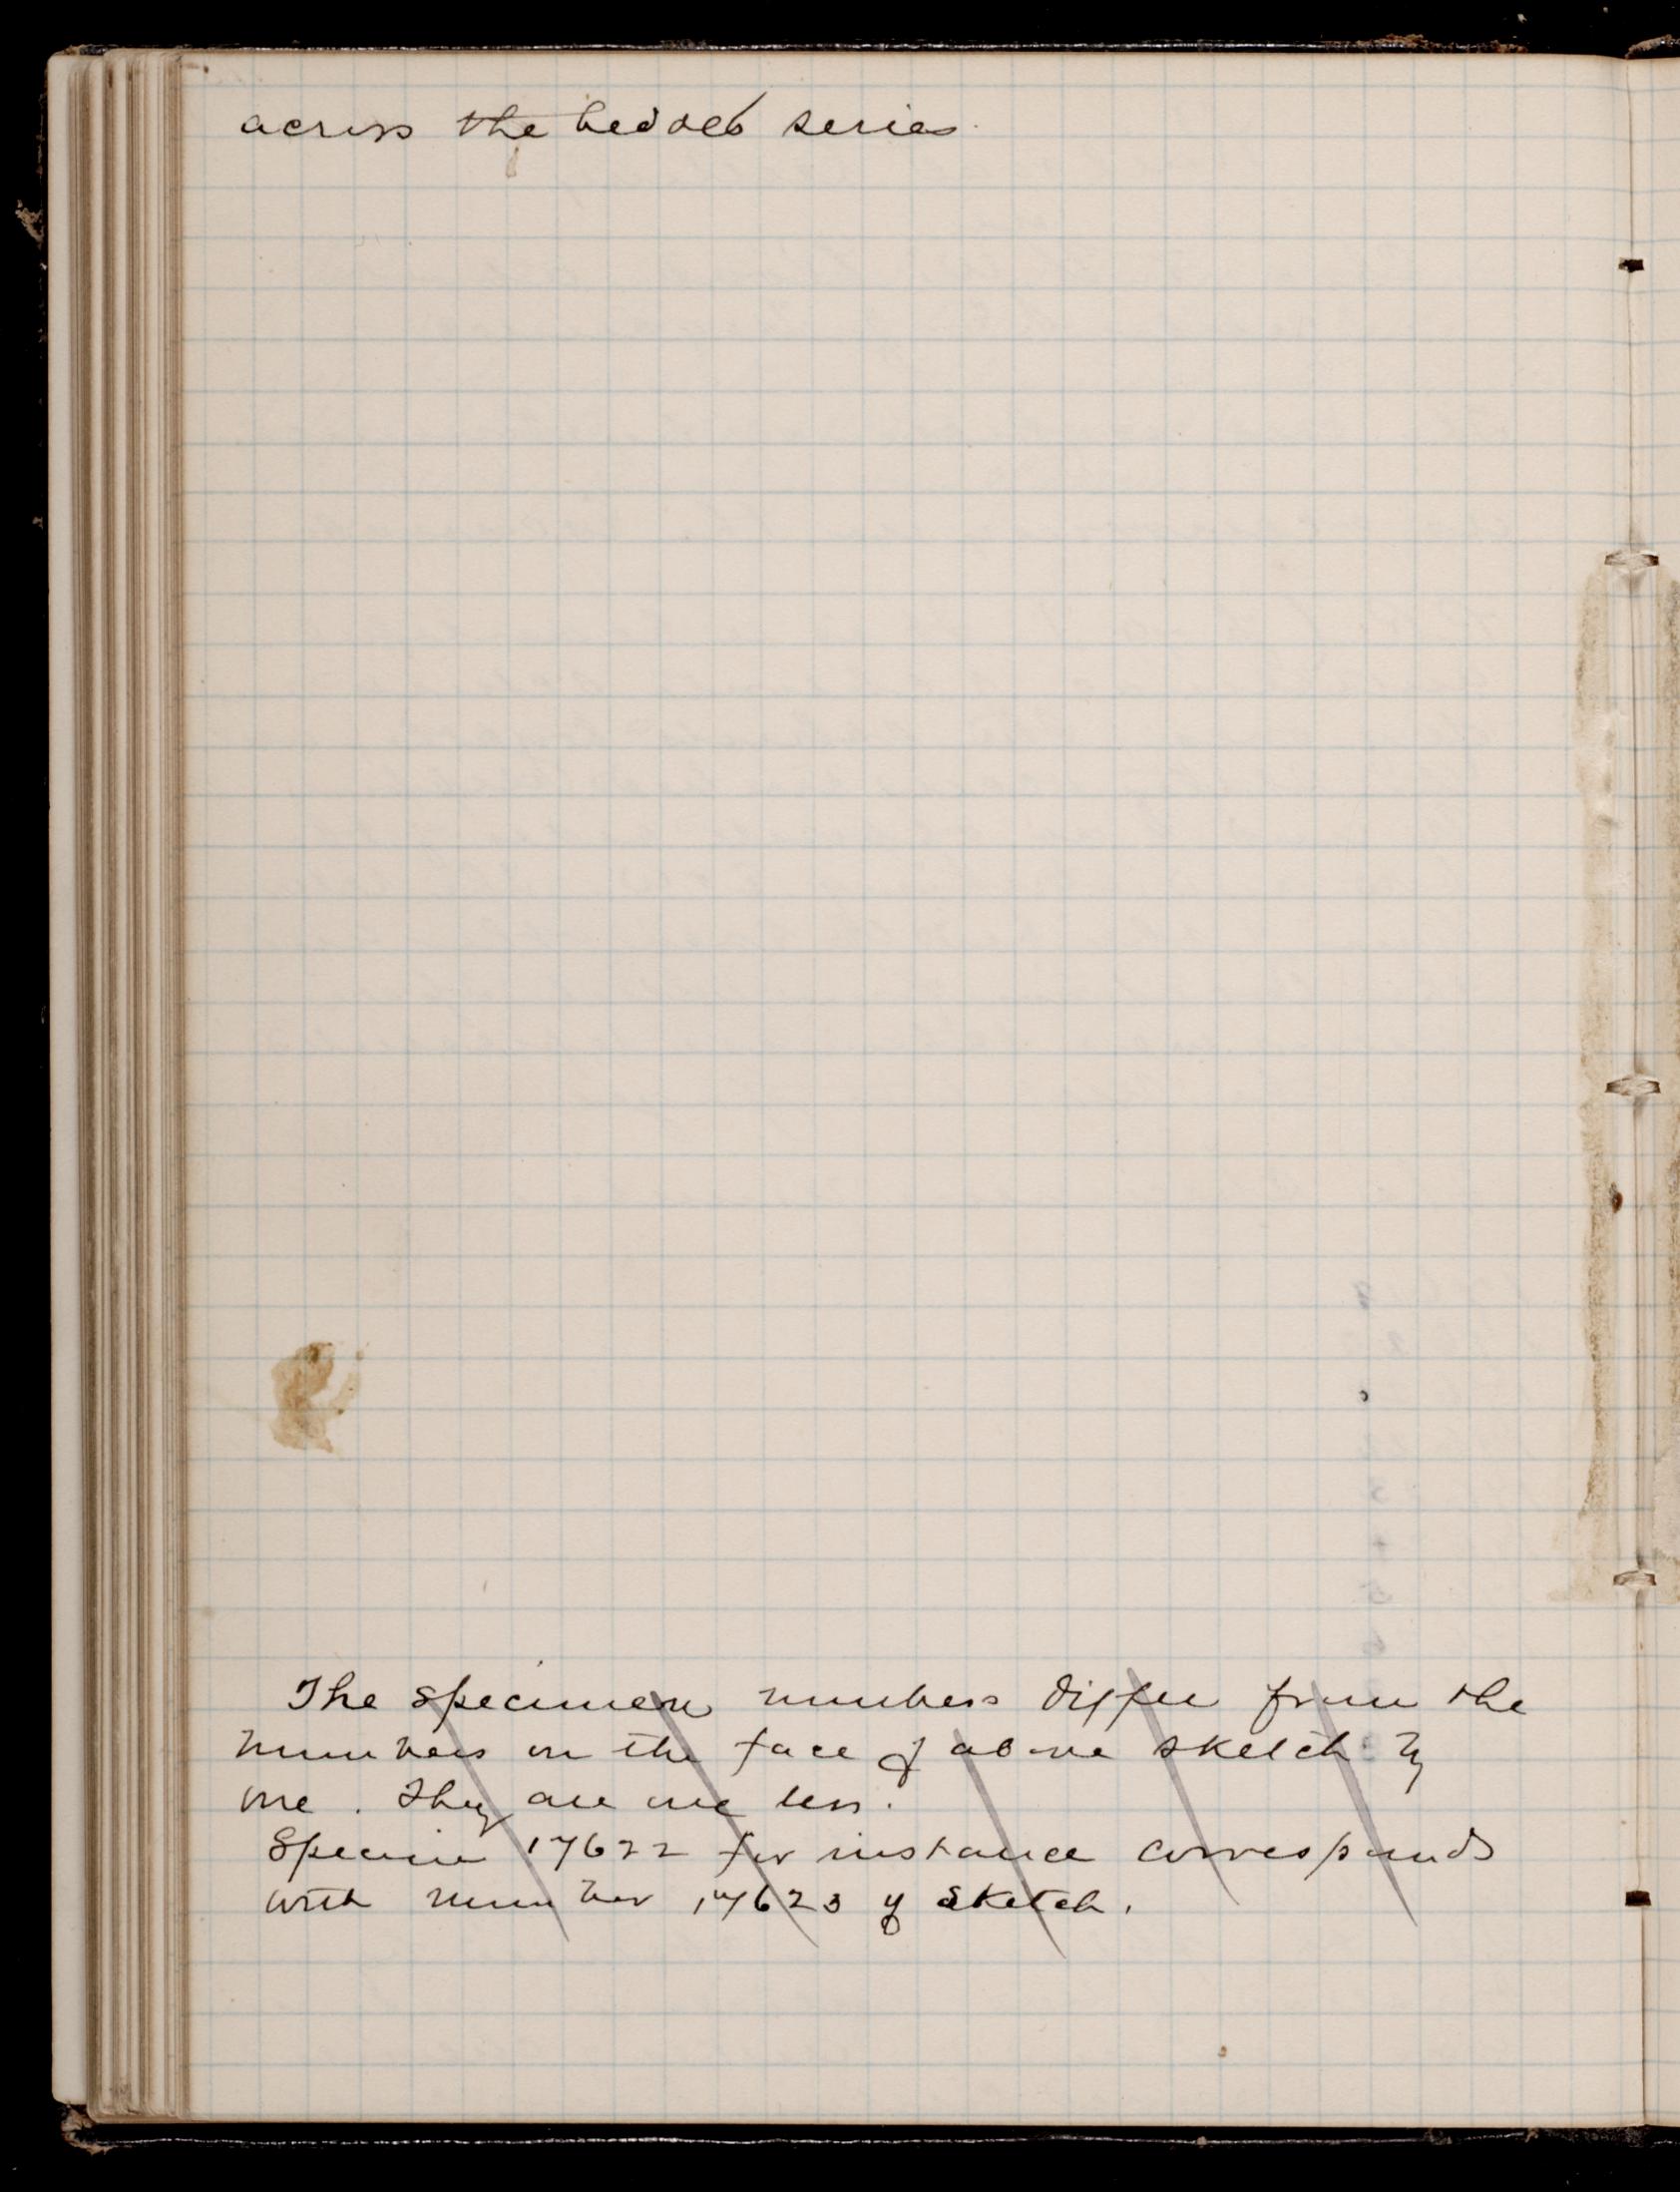 across the bedded series.
The specimen numbers differ from the
numbers on the face of above sketch by
one. They are one less.
Specimen 17622 for instance corresponds
with number 17623 of sketch.